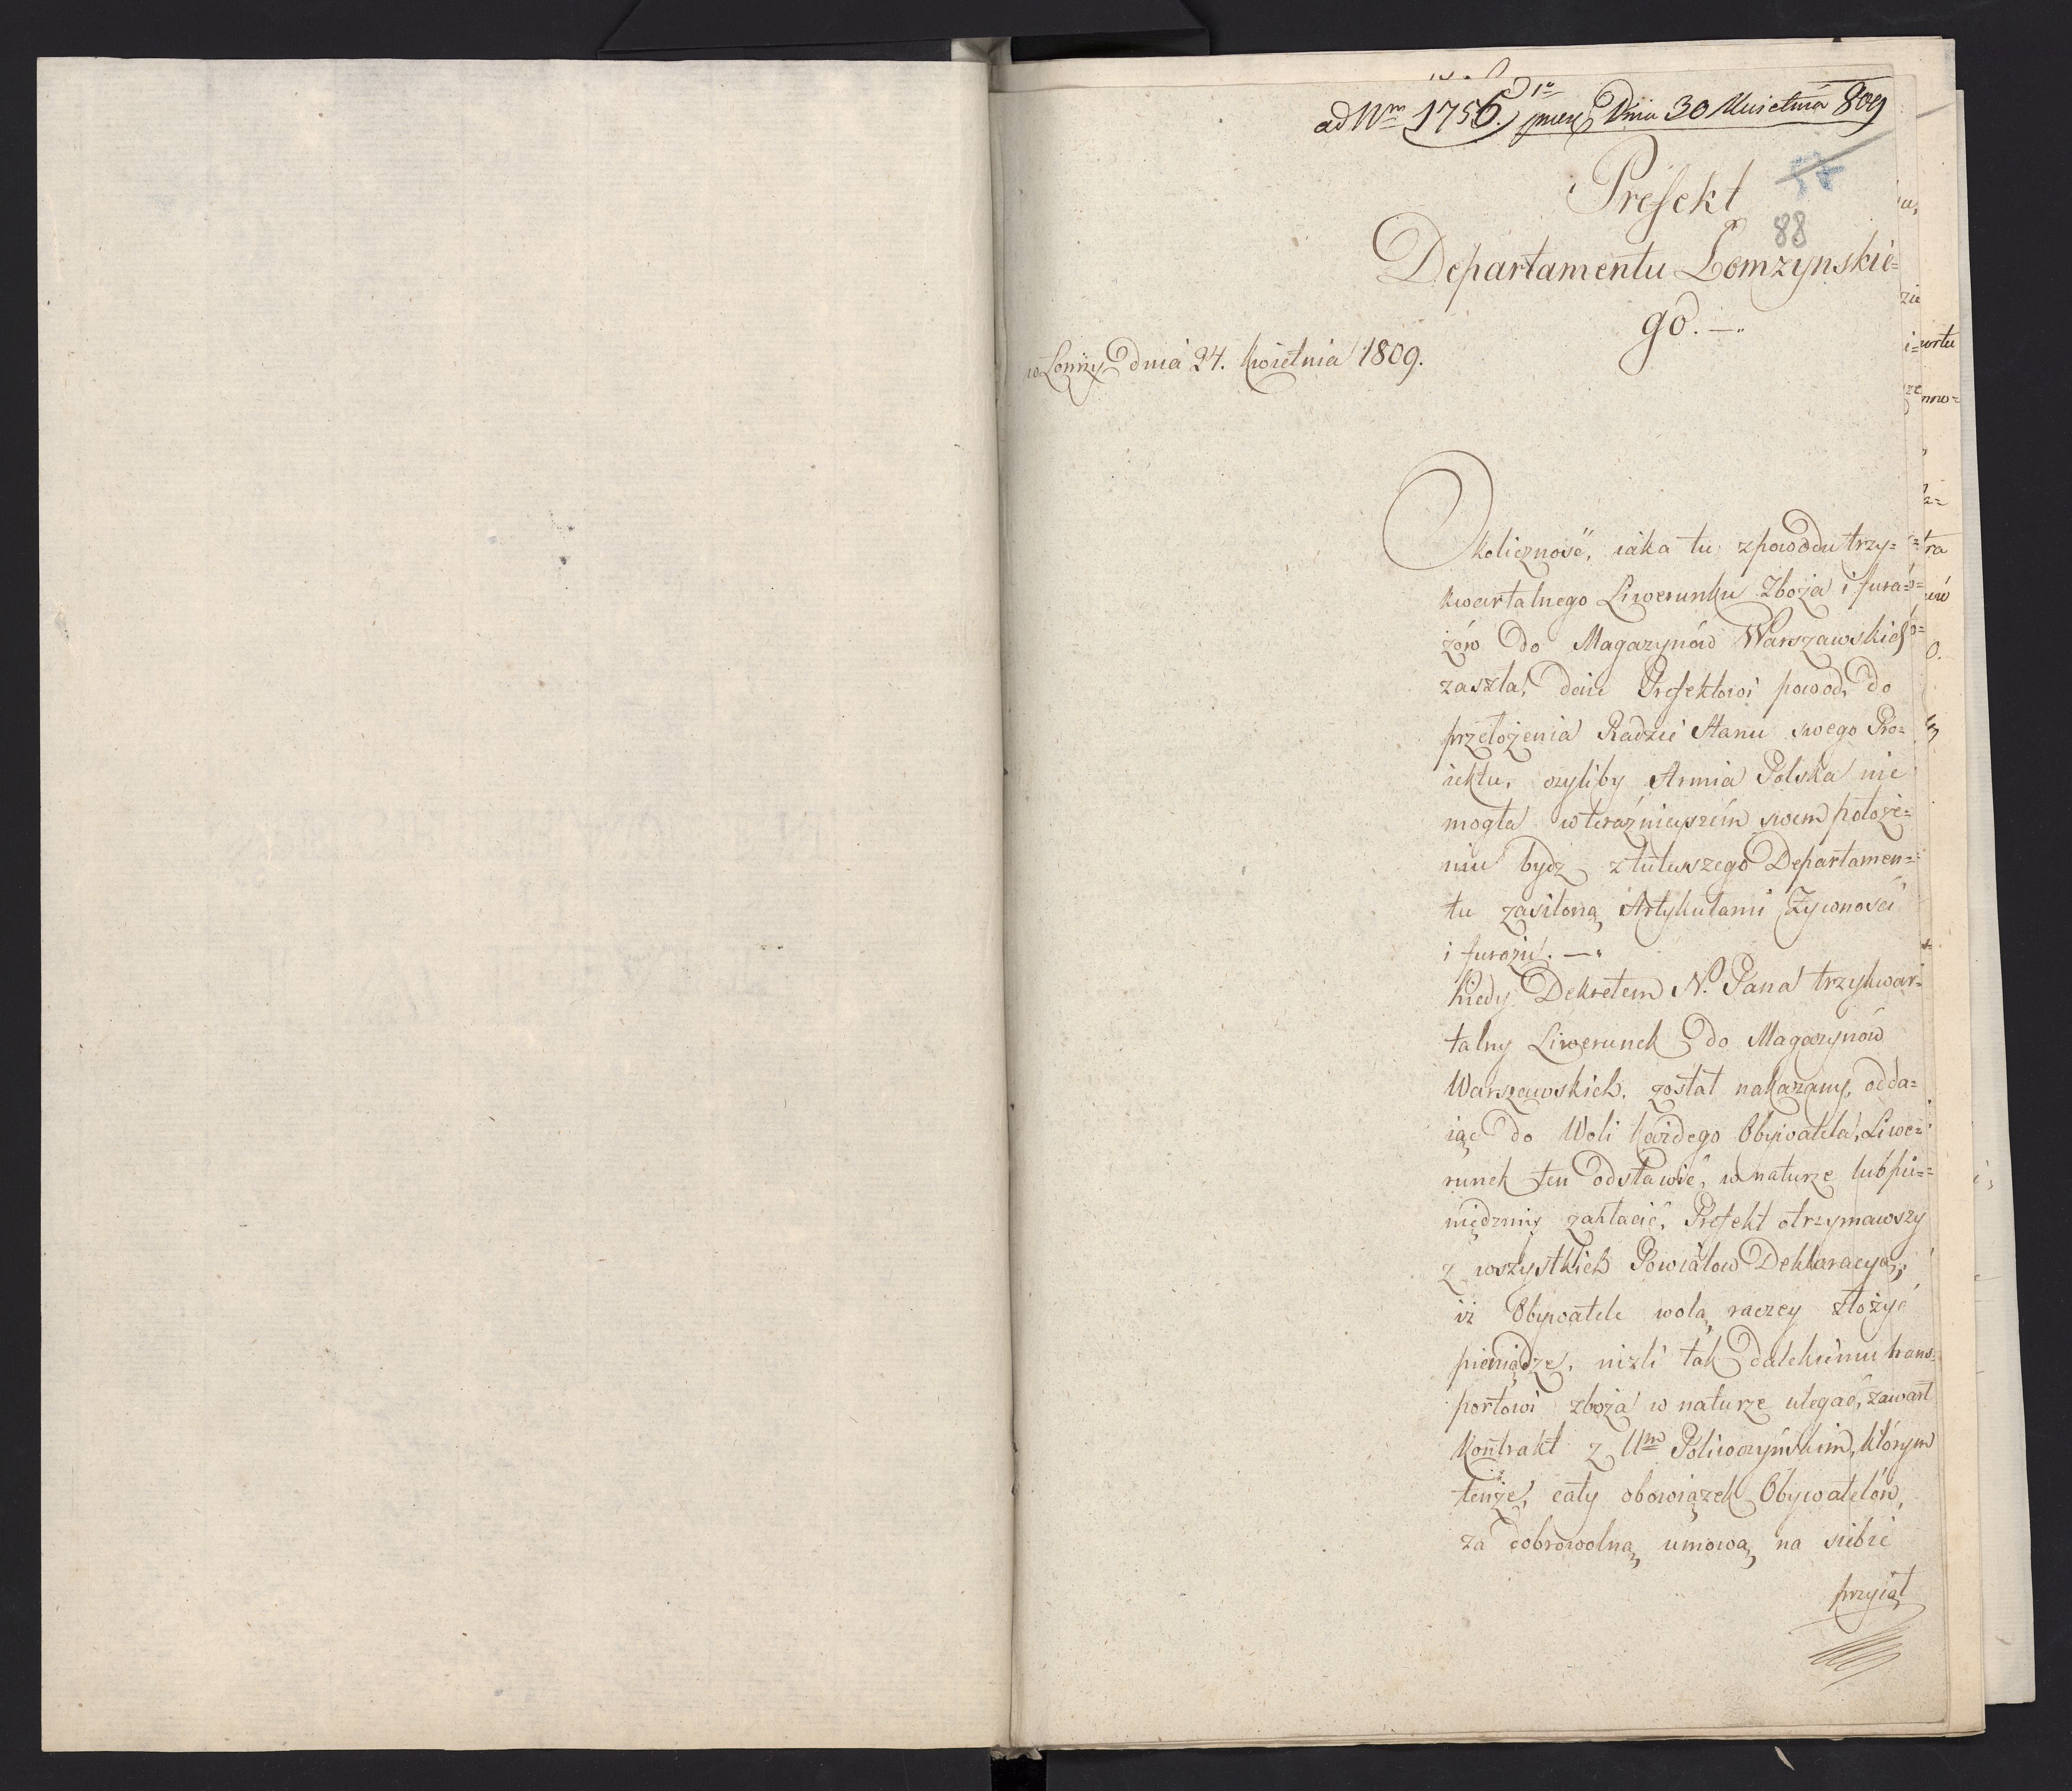 ad Nrm 1756. Dnia 30 Kwietnia 809
Prefekt
88
Departamentu Łomzynskie=
go. —
w Łomży dnia 24. Kwietnia 1809.
Okoliczność, iaka tu z powodu trzy=
kwartalnego Liwerunku Zboża i fura=
żów do Magazynów Warszawskich
zaszła, daie Prefektowi powod, do
przełożenia Radzie Stanu swego Pro=
iektu, czyliby Armia Polska nie
mogła w teraźnieyszém swem położe=
niu bydź z tuteyszego Departamen=
tu zasiloną Artykułami Żywności
i furażu. —
Kiedy Dekretem N. Pana trzykwar=
talny Liwerunek do Magazynów
Warszawskich, został nakazany, odda=
iąc do Woli każdego Obywatela, Liwe=
runek ten odstawić, w naturze lub pie=
niędzmi zapłacić, Prefekt otrzymawszy
z wszystkich Powiatow Deklaracyą,
iż Obywatele wolą raczey złożyć
pieniądze, nizli tak dalekiemu trans=
portowi zboża w naturze ulegać, zawarł
Kontrakt z Um Poliwczyńskim, którym
tenże, cały obowiązek Obywatelów,
za dobrowolną umową na siebie
przyiął